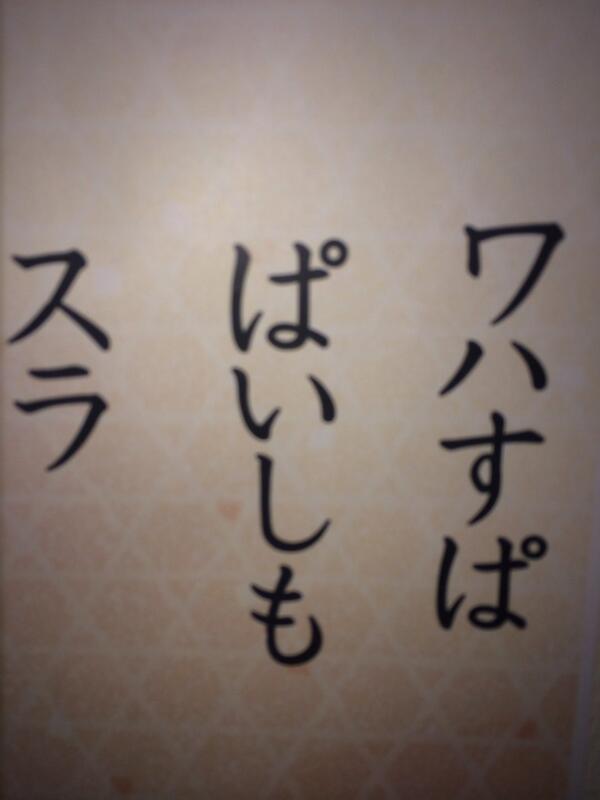 ワハすぱ
ぱいしも
スラ